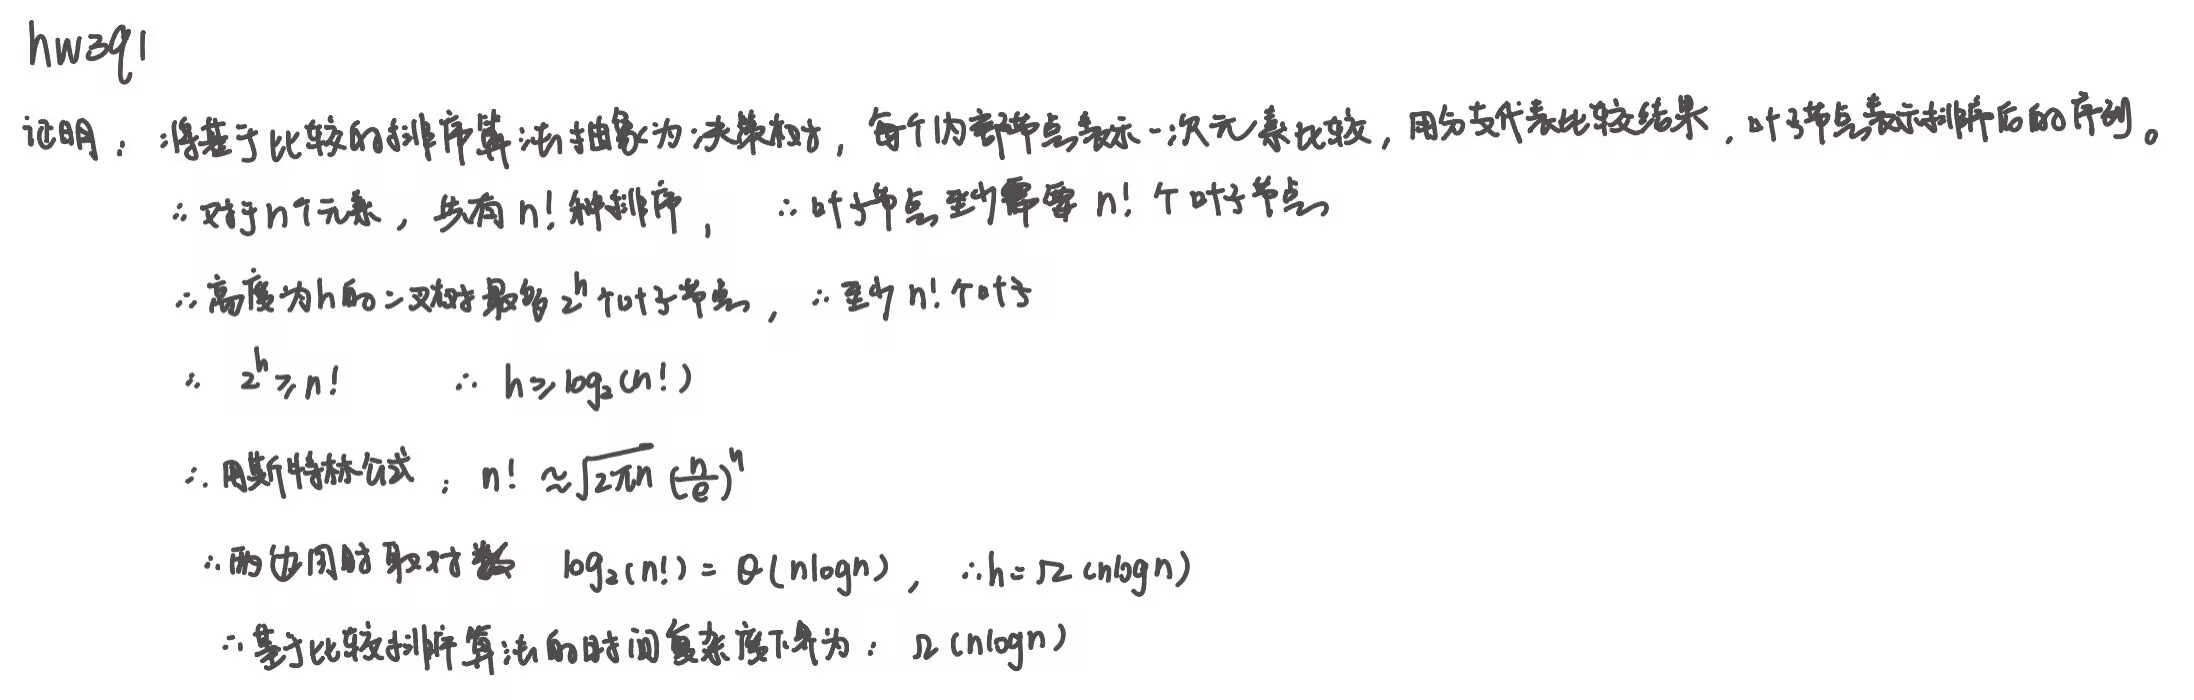 hw3q1
证明：将基于比较的排序算法抽象为决策树，每个内部节点表示一次元素比较，用分支代表比较结果，叶子节点表示排序后的序列。
∵对于n个元素，共有n!种排序， ∴叶子节点至少需要 n! 个叶子节点
∵高度为h的二叉树最多2^h个叶子节点，∵至少n!个叶子
∴ 2^h ≥ n! ∴ h ≥ log₂(n!)
∵用斯特林公式：n! ≈ √(2πn) (n/e)^n
∴两边同时取对数 log₂(n!) = Θ(nlogn)，∴h = Ω(nlogn)
∴基于比较排序算法的时间复杂度下界为：Ω(nlogn)